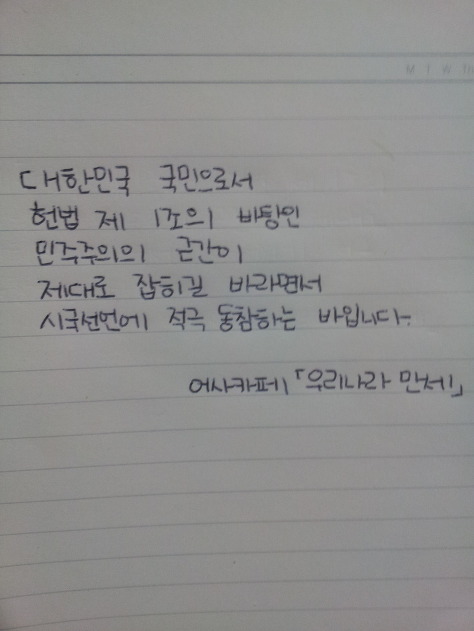 M T W
대한민국 국민으로서
헌법 제 1조의 바탕인
민주주의의 근간이
제대로 잡히길 바라면서
시국선언에 적극 동참하는 바입니다.
어사카페「우리나라 만세!」